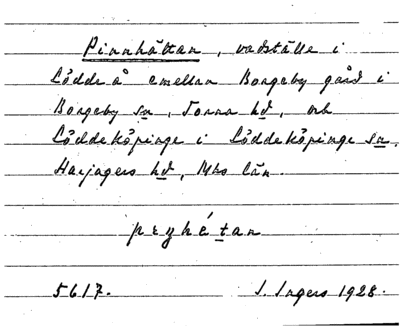 Pinnhättan, vadställe i
Lödde å emellan Borgeby gård i
Borgeby sn, Torna hd, och
Löddeköpinge i Löddeköpinge sn,
Harjagers hd, Mhs län.
prnhétan
5617. I. Ingers 1928.